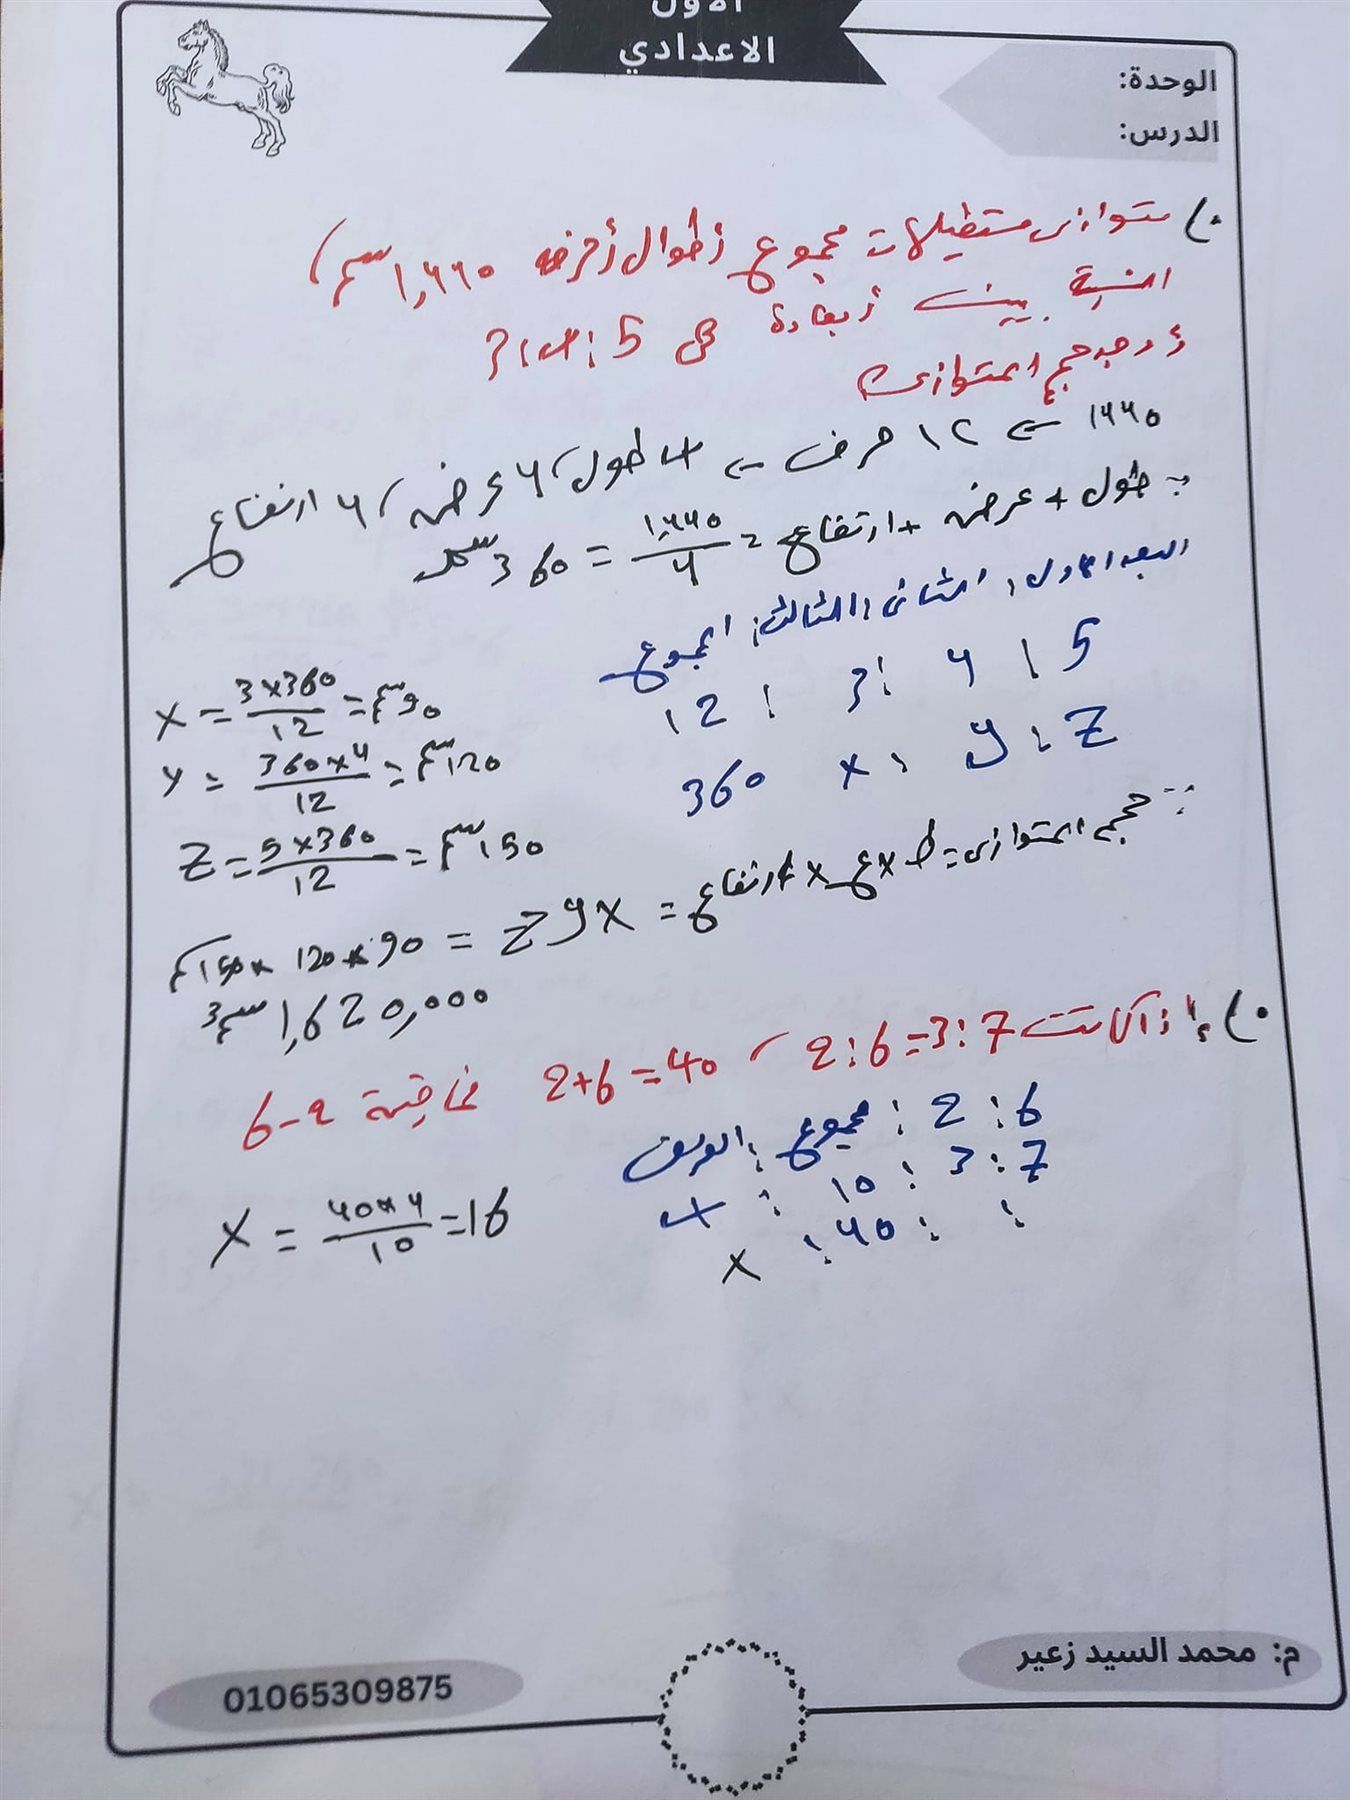 الأول
الاعدادي
الوحدة:
الدرس:
متوازى مستطيلات مجموع أطوال أحرفه 1,440 سم
النسبة بين أبعاده هى 5 : 4 : 3
أوجد حجم المتوازى
1440 ← 12 حرف ← 4 طول، 4 عرض، 4 ارتفاع
∴ طول + عرض + ارتفاع = 1,440 / 4 = 360 سم
البعد الاول : الثانى : الثالث : المجموع
5 : 4 : 3 : 12
Z : y : x 360
X = 3x360 / 12 = 90 سم
y = 360x4 / 12 = 120 سم
Z = 5x360 / 12 = 150 سم
∵ حجم المتوازى = ط x ع x ارتفاع = X y Z = 90 x 120 x 150 سم
1,620,000 سم3
إذا كانت 2:6=3:7 ، 2+6=40 فما قيمة 6-2
6 : 2 : مجموع : الفرق
7 : 3 : 10 : 4
: : 40 : X
X = 40x4 / 10 = 16
م: محمد السيد زعير
01065309875